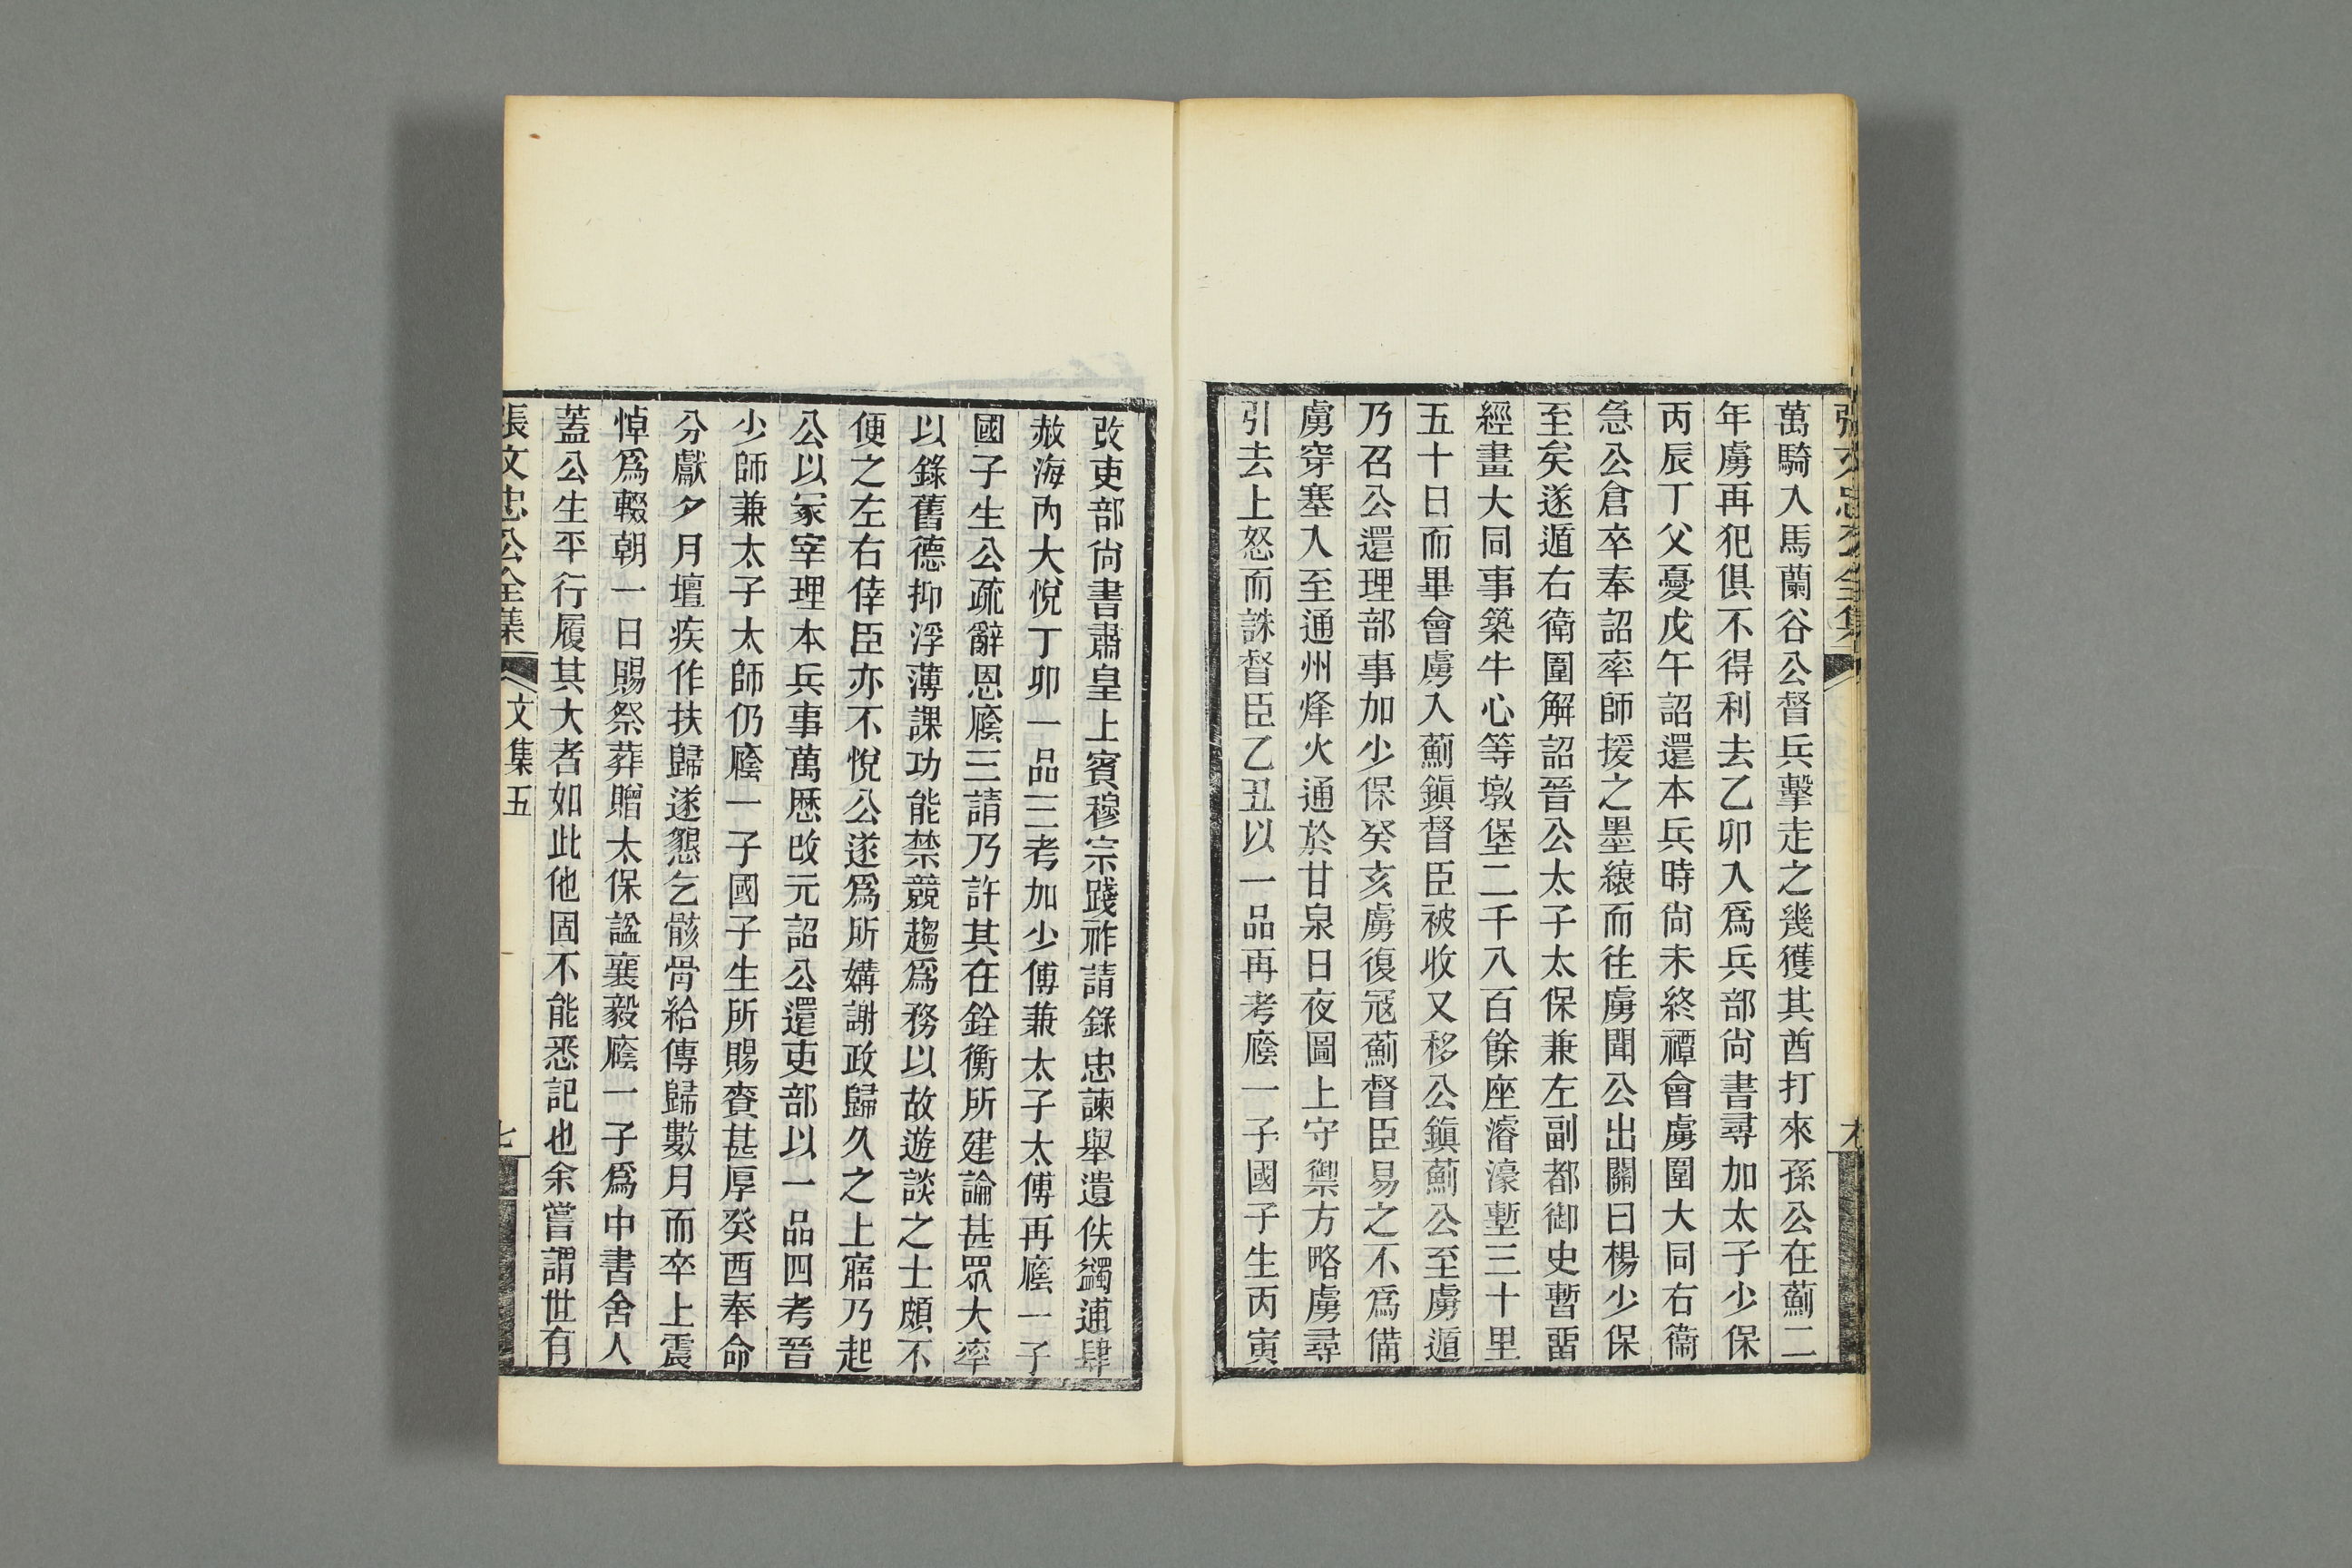 萬騎入馬蘭谷公督兵擊走之幾獲其酋打來孫公在薊二
年虜再犯俱不得利去乙卯入爲兵部尙書尋加太子少保
丙辰丁父憂戊午詔還本兵時尙未終禫會虜圍大同右衞
急公倉卒奉詔率師援之墨縗而往虜聞公出關曰楊少保
至矣遂遁右衛圍解詔晉公太子太保兼左副都御史暫畱
經畫大同事築牛心等墩堡二千八百餘座濬濠塹三十里
五十日而畢會虜入薊鎭督臣被收又移公鎭薊公至虜遁
乃召公還理部事加少保癸亥虜復冦薊督臣易之不爲備
虜穿塞入至通州烽火通於甘泉日夜圖上守禦方略虜尋
引去上怒而誅督臣乙丑以一品再考廕一子國子生丙寅
攺吏部尙書肅皇上賓穆宗踐祚請錄忠諫舉遺佚蠲逋肆
赦海內大悅丁卯一品三考加少傅兼太子太傅再廕一子
國子生公疏辭恩廕三請乃許其在銓衡所建論甚眾大率
以錄舊德抑浮薄課功能禁競趨爲務以故遊談之士頗不
便之左右倖臣亦不悅公遂爲所媾謝政歸久之上寤乃起
公以冢宰理本兵事萬歷攺元詔公還吏部以一品四考晉
少師兼太子太師仍廕一子國子生所賜賚甚厚癸酉奉命
分獻夕月壇疾作扶歸遂懇乞骸骨給傳歸數月而卒上震
悼爲輟朝一日賜祭葬贈太保諡襄毅廕一子爲中書舍人
蓋公生平行履其大者如此他固不能悉記也余嘗謂世有
張文忠公全集 文集五 七